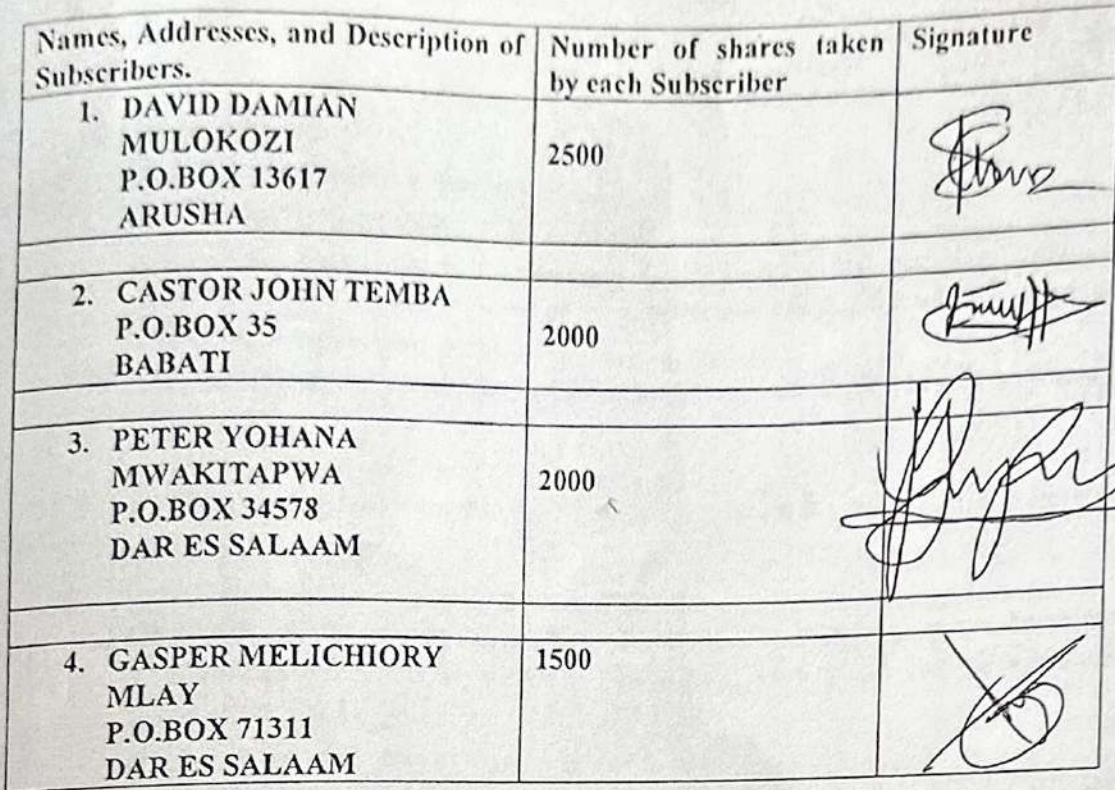 Names, Addresses, and Description of Subscribers.
Number of shares taken by each Subscriber
Signature
1. DAVID DAMIAN
MULOKOZI
P.O.BOX 13617
ARUSHA
2500
2. CASTOR JOHN TEMBA
P.O.BOX 35
BABATI
2000
3. PETER YOHANA
MWAKITAPWA
P.O.BOX 34578
DAR ES SALAAM
2000
4. GASPER MELICHIORY
MLAY
P.O.BOX 71311
DAR ES SALAAM
1500